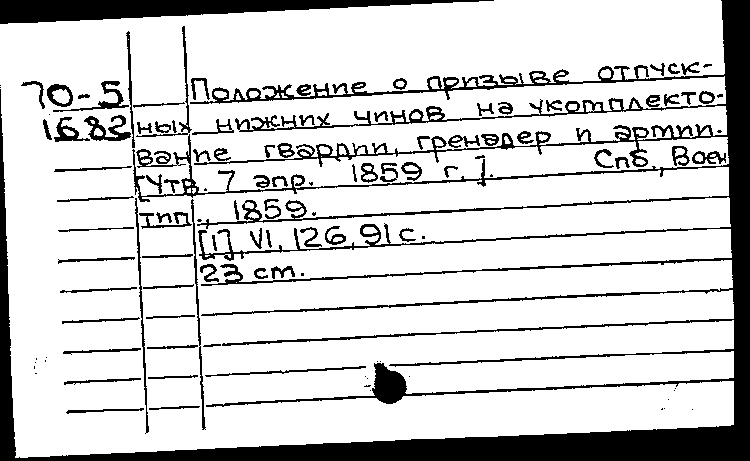 70-5 Положение о призыве отпуск-
1682 ных нижних чинов на укомплекто-
вание гвардии, гренадер и армии.
[Утв. 7 апр. 1859 г.]. Спб., Воен
тип., 1859.
[1], VI, 126, 91 с.
23 см.